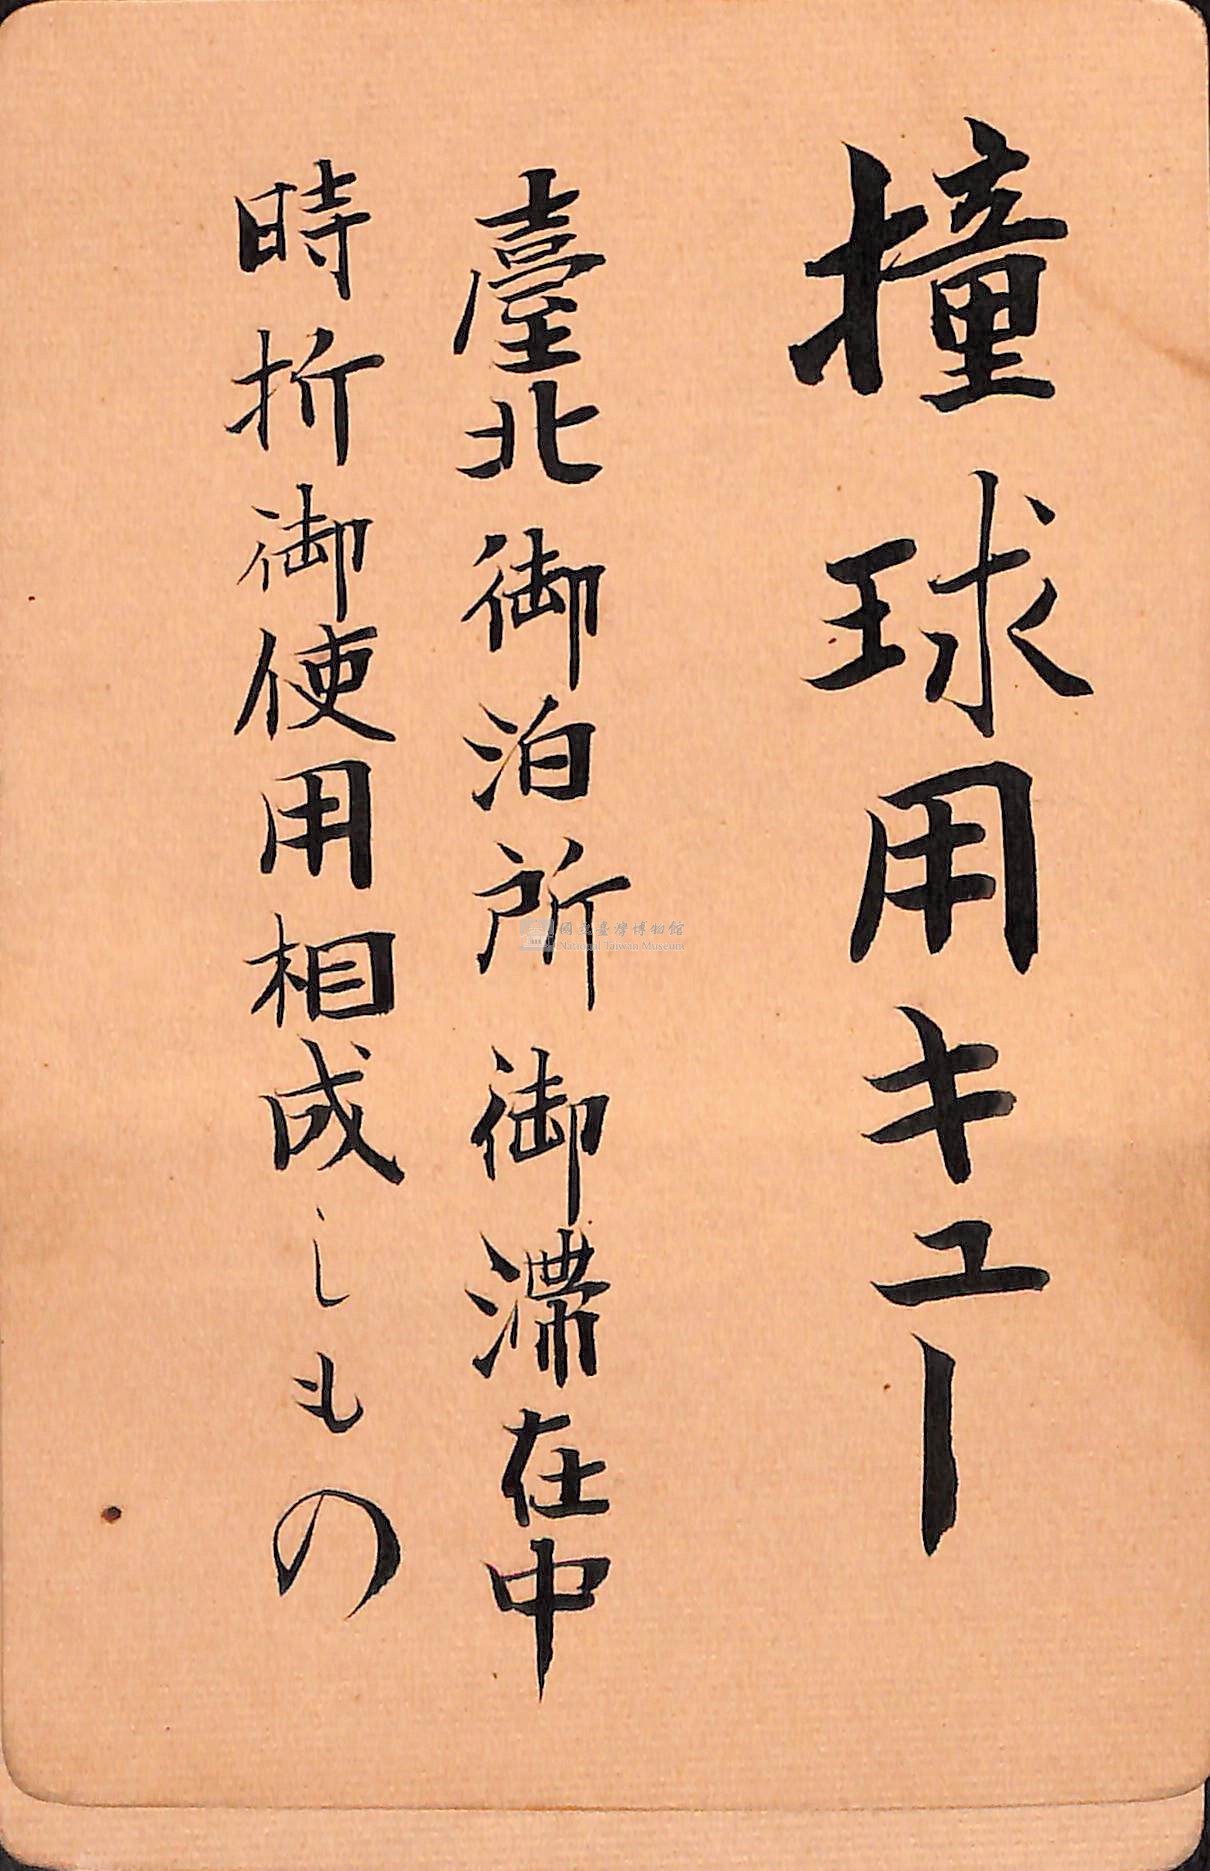 撞球用キュー
臺北御泊所御滯在中
時折御使用相成しもの
國立臺灣博物館
National Taiwan Museum